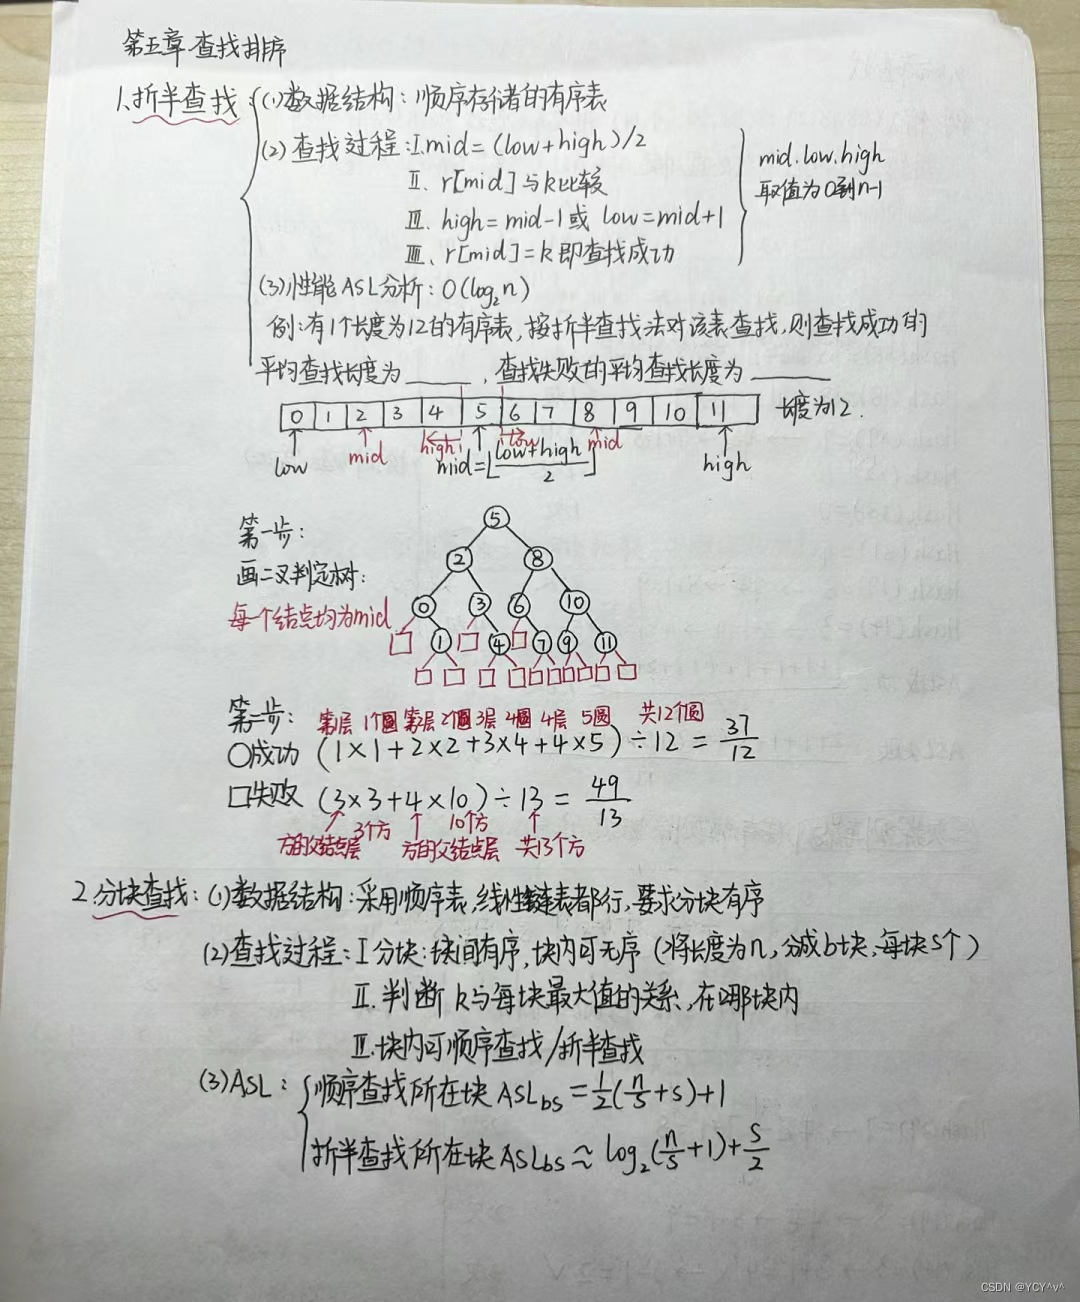 第五章 查找排序
1、折半查找 (1)数据结构：顺序存储的有序表
(2)查找过程：Ⅰ.mid=(low+high)/2
Ⅱ、r[mid]与k比较
Ⅲ、high=mid-1或 low=mid+1
Ⅲ、r[mid]=k 即查找成功
mid.low.high
取值为0到n-1
(3)性能ASL分析：O(log₂n)
例：有1个长度为12的有序表，按折半查找法对该表查找，则查找成功的
平均查找长度为______，查找失败的平均查找长度为______
0 1 2 3 4 5 6 7 8 9 10 11 长度为12.
low mid high mid=⌊(low+high)/2⌋ low mid high
第一步：
画二叉判定树：
每个结点均为mid
5
2 8
0 3 6 10
1 4 7 9 11
第二步： 第1层 1个圆 第2层 2个圆 3层 4圆 4层 5圆 共12个圆
○成功 (1×1+2×2+3×4+4×5)÷12=37/12
□失败 (3×3+4×10)÷13=49/13
方的父结点层 3个方 方的父结点层 10个方 共13个方
2.分块查找：(1)数据结构：采用顺序表，线性链表都行，要求分块有序
(2)查找过程：Ⅰ分块：块间有序，块内可无序（将长度为n，分成b块，每块s个）
Ⅱ.判断k与每块最大值的关系，在哪块内
Ⅲ.块内可顺序查找/折半查找
(3)ASL：顺序查找所在块 ASLbs=1/2(n/s+s)+1
折半查找所在块 ASLbs≈log₂(n/s+1)+s/2
CSDN @YCY^v^